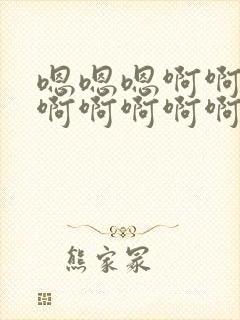 嗯嗯嗯啊啊
啊啊啊啊啊
熊家冢